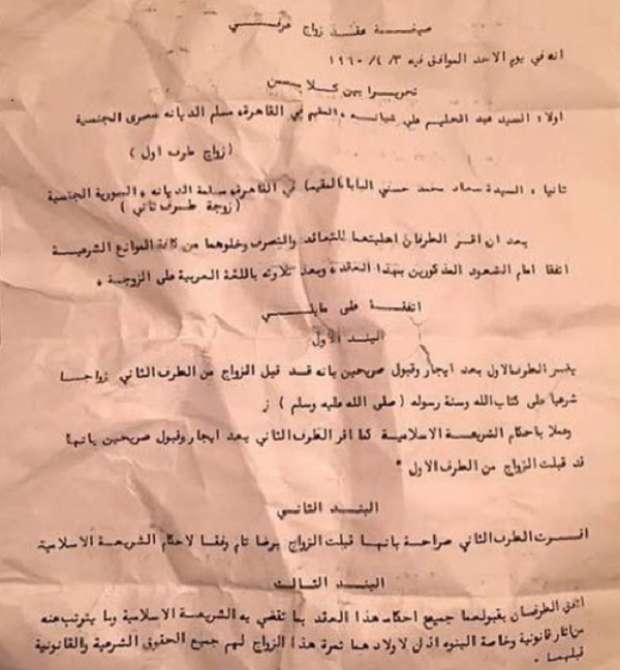 صيغة عقد زواج عرفي
انه في يوم الاحد الموافق فيه ٣ /٤ /١٩٦٠
تحريرا بين كلا من
اولا ء السيد عبد الحليم علي شبانه ء المقيم في القاهرة، مسلم الديانه مصرى الجنسية
( زواج طرف اول )
ثانيا ء السيدة سعاد محمد حسني البابا المقيمة في القاهرة مسلمة الديانه ء السورية الجنسية
( زوجة طرف ثاني )
بعد ان اقر الطرفان اهليتهما للتعاقد والتصرف وخلوهما من كافة الموانع الشرعية
اتفقا امام الشهود المذكورين بهذا العقد ء وبعد تلاوته باللغة العربية على الزوجة ٠
اتفقا على مايلي
البند الاول
يقر الطرف الاول بعد ايجار وقبول صريحين بانه قد قبل الزواج من الطرف الثاني زواجا
شرعيا على كتاب الله وسنة رسوله ( صلى الله عليه وسلم ) ز
وعملا باحكام الشريعة الاسلامية كما اقر الطرف الثاني بعد ايجار وقبول صريحين بانها
قد قبلت الزواج من الطرف الاول ٠
البند الثاني
اقرت الطرف الثاني صراحة بانها قبلت الزواج برضا تام وفقا لاحكام الشريعة الاسلامية
البند الثالث
اتفق الطرفان بقبولهما جميع احكام هذا العقد بما تقضي به الشريعة الاسلامية وما يترتب عنه
من اثار قانونية وخاصة البنوه اذ لاولادهما ثمرة هذا الزواج لهم جميع الحقوق الشرعية والقانونية
قبلهما ٠